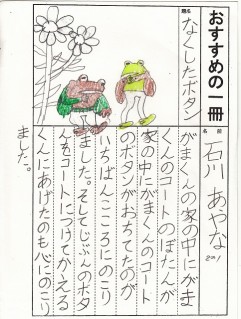 おすすめの一冊
題名
なくしたボタン
名前
石川 あやな
2の1
がまくんの家の中にがま
くんのコートのぼたんが
家の中にがまくんのコート
のボタンがおちてたのが
いちばんこころにのこり
ました。そしてじぶんのボタ
んをコートにつけてかえる
くんにあげたのも心にのこり
ました。